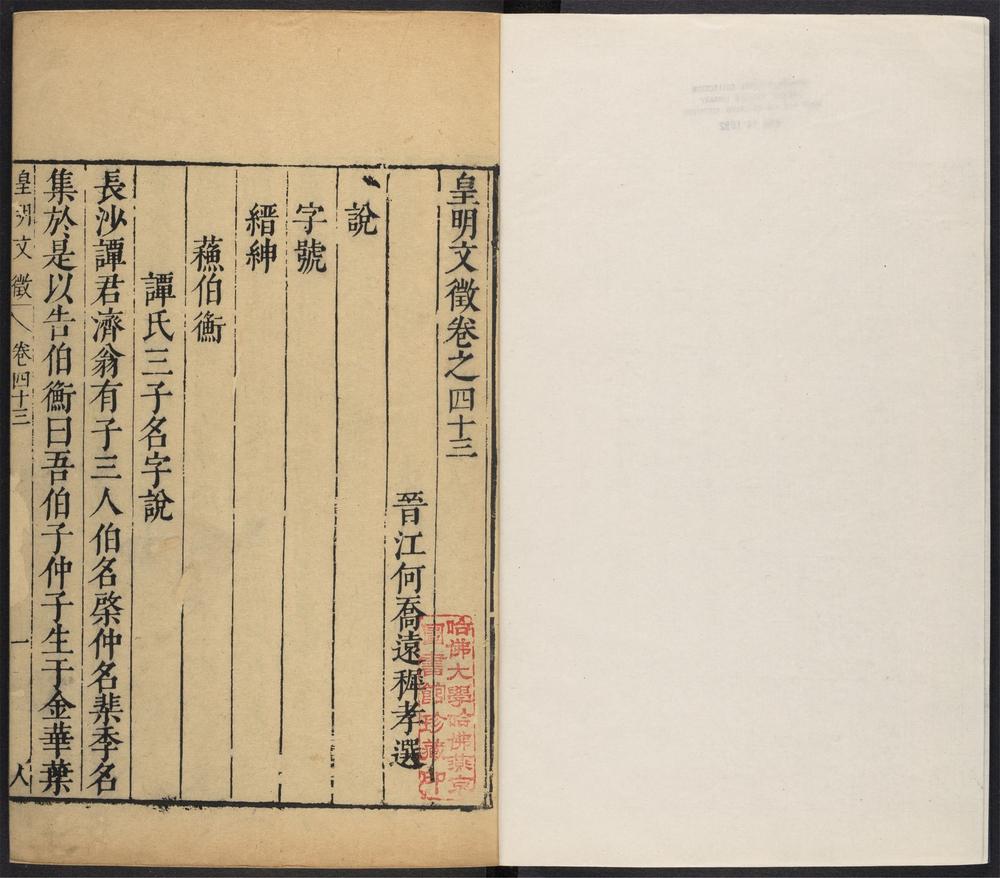 皇明文徵卷之四十三
晉江何喬遠穉孝選
說
字號
縉紳
蘓伯衡
譚氏三子名字說
長沙譚君濟翁有子三人伯名棨仲名棐季名
集於是以告伯衡曰吾伯子仲子生于金華葉
皇明文徵 卷四十三 一
哈佛大學哈佛燕京
圖書館珍藏印